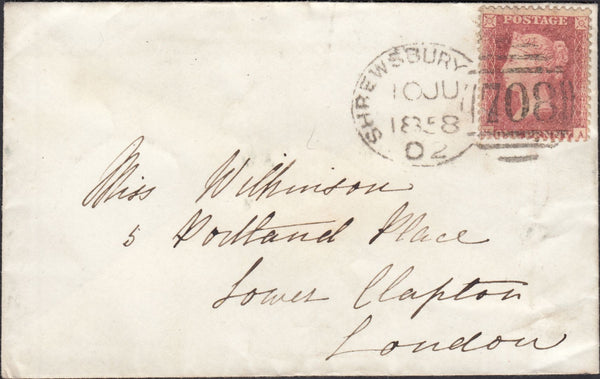 POSTAGE
SHREWSBURY
10 JU
1858
02
708
A
Miss Wilkinson
5 Portland Place
Lower Clapton
London